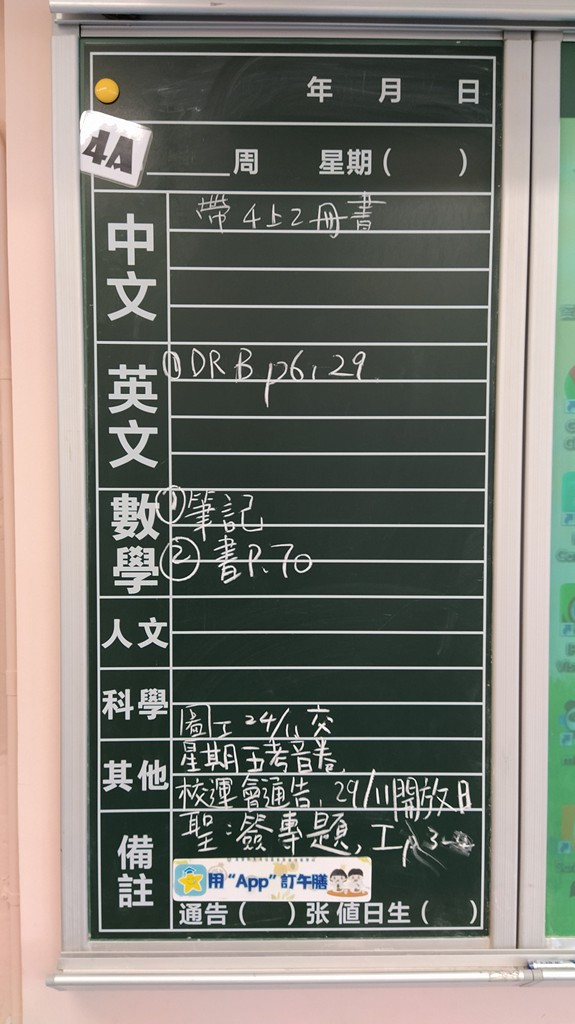 年 月 日
4A
周 星期( )
中文
帶4上2冊書
英文
① DRB p6, 29
數學
① 筆記
② 書P.70
人文
科學
其他
圖工 24/11 交
星期五考音卷
校運會通告, 29/11開放日
備註
聖:簽專題, 工p3
用“App”訂午膳
通告( )张 值日生( )